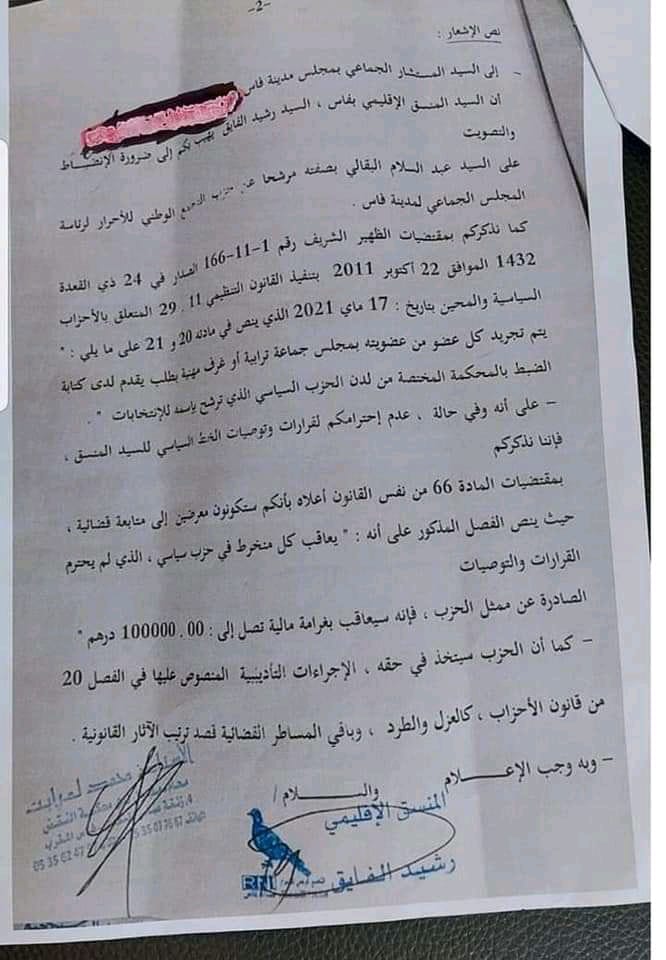 -2-
نص الإشعار :
- إلى السيد المستشار الجماعي بمجلس مدينة فاس
أن السيد المنسق الإقليمي بفاس ، السيد رشيد الفايق يهيب بكم إلى ضرورة الإنضبـاط
والتصويت
على السيد عبد السلام البقالي بصفته مرشحا عن حزب التجمع الوطني للأحرار لرئاسة
المجلس الجماعي لمدينة فاس .
كما نذكركم بمقتضيات الظهير الشريف رقم 1-11-166 الصادر في 24 ذي القعدة
1432 الموافق 22 أكتوبر 2011 بتنفيذ القانون التنظيمي 11 . 29 المتعلق بالأحزاب
السياسية والمحين بتاريخ : 17 ماي 2021 الذي ينص في مادته 20 و 21 على ما يلي : "
يتم تجريد كل عضو من عضويته بمجلس جماعة ترابية أو غرف مهنية بطلب يقدم لدى كتابة
الضبط بالمحكمة المختصة من لدن الحزب السياسي الذي ترشح باسمه للإنتخابات " .
- على أنه وفي حالة ، عدم إحترامكم لقرارات وتوصيات الخط السياسي للسيد المنسق ،
فإننا نذكركم
بمقتضيات المادة 66 من نفس القانون أعلاه بأنكم ستكونون معرضين إلى متابعة قضائية ،
حيث ينص الفصل المذكور على أنه : " يعاقب كل منخرط في حزب سياسي ، الذي لم يحترم
القرارات والتوصيات
الصادرة عن ممثل الحزب ، فإنه سيعاقب بغرامة مالية تصل إلى : 100000.00 درهم "
- كما أن الحزب سيتخذ في حقه ، الإجراءات التأديبية المنصوص عليها في الفصل 20
من قانون الأحزاب ، كالعزل والطرد ، وباقي المساطر القضائية قصد ترتيب الآثار القانونية .
- وبه وجب الإعـــــلام والســـــلام /
المنسق الإقليمي
رشيد الفايق
RNI
الأستاذ محمد